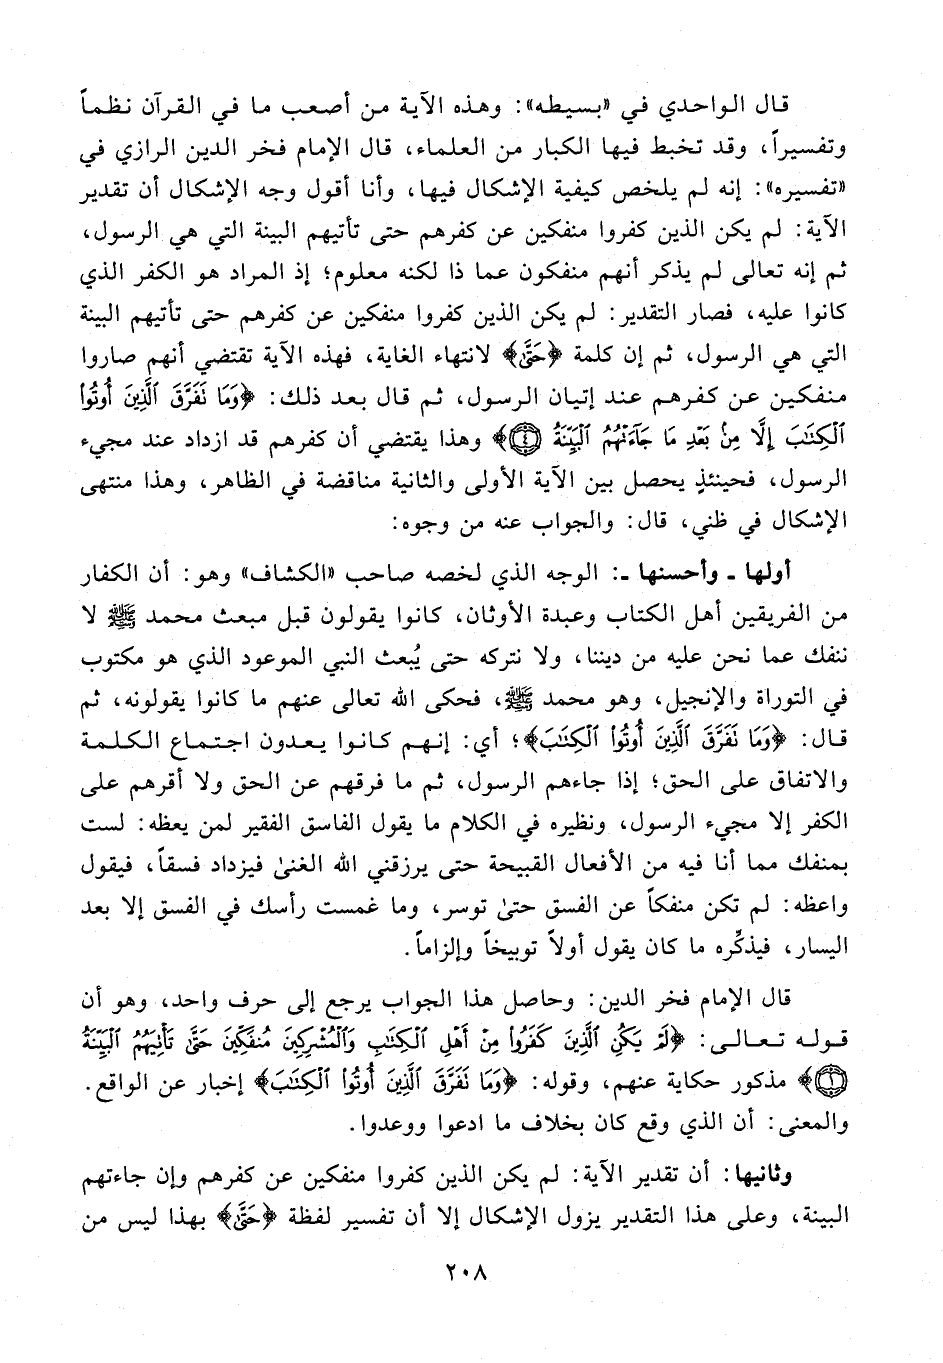 قال الواحدي في «بسيطه»: وهذه الآية من أصعب ما في القرآن نظماً
وتفسيراً، وقد تخبط فيها الكبار من العلماء، قال الإمام فخر الدين الرازي في
«تفسيره»: إنه لم يلخص كيفية الإشكال فيها، وأنا أقول وجه الإشكال أن تقدير
الآية: لم يكن الذين كفروا منفكين عن كفرهم حتى تأتيهم البينة التي هي الرسول،
ثم إنه تعالى لم يذكر أنهم منفكون عما ذا لكنه معلوم؛ إذ المراد هو الكفر الذي
كانوا عليه، فصار التقدير: لم يكن الذين كفروا منفكين عن كفرهم حتى تأتيهم البينة
التي هي الرسول، ثم إن كلمة ﴿حَتَّىٰ﴾ لانتهاء الغاية، فهذه الآية تقتضي أنهم صاروا
منفكين عن كفرهم عند إتيان الرسول، ثم قال بعد ذلك: ﴿وَمَا نَفَرَّقَ ٱلَّذِينَ أُوتُوا۟
ٱلْكِتَٰبَ إِلَّا مِنۢ بَعْدِ مَا جَآءَتْهُمُ ٱلْبَيِّنَةُ ٤﴾ وهذا يقتضي أن كفرهم قد ازداد عند مجيء
الرسول، فحينئذٍ يحصل بين الآية الأولى والثانية مناقضة في الظاهر، وهذا منتهى
الإشكال في ظني، قال: والجواب عنه من وجوه:
أولها - وأحسنها -: الوجه الذي لخصه صاحب «الكشاف» وهو: أن الكفار
من الفريقين أهل الكتاب وعبدة الأوثان، كانوا يقولون قبل مبعث محمد ﷺ لا
ننفك عما نحن عليه من ديننا، ولا نتركه حتى يُبعث النبي الموعود الذي هو مكتوب
في التوراة والإنجيل، وهو محمد ﷺ، فحكى الله تعالى عنهم ما كانوا يقولونه، ثم
قال: ﴿وَمَا نَفَرَّقَ ٱلَّذِينَ أُوتُوا۟ ٱلْكِتَٰبَ﴾؛ أي: إنهم كانوا يعدون اجتماع الكلمة
والاتفاق على الحق؛ إذا جاءهم الرسول، ثم ما فرقهم عن الحق ولا أقرهم على
الكفر إلا مجيء الرسول، ونظيره في الكلام ما يقول الفاسق الفقير لمن يعظه: لست
بمنفك مما أنا فيه من الأفعال القبيحة حتى يرزقني الله الغنىٰ فيزداد فسقاً، فيقول
واعظه: لم تكن منفكاً عن الفسق حتىٰ توسر، وما غمست رأسك في الفسق إلا بعد
اليسار، فيذكِّره ما كان يقول أولاً توبيخاً وإلزاماً.
قال الإمام فخر الدين: وحاصل هذا الجواب يرجع إلى حرف واحد، وهو أن
قوله تعالى: ﴿لَمْ يَكُنِ ٱلَّذِينَ كَفَرُوا۟ مِنْ أَهْلِ ٱلْكِتَٰبِ وَٱلْمُشْرِكِينَ مُنفَكِّينَ حَتَّىٰ تَأْتِيَهُمُ ٱلْبَيِّنَةُ
١﴾ مذكور حكاية عنهم، وقوله: ﴿وَمَا نَفَرَّقَ ٱلَّذِينَ أُوتُوا۟ ٱلْكِتَٰبَ﴾ إخبار عن الواقع.
والمعنى: أن الذي وقع كان بخلاف ما ادعوا ووعدوا.
وثانيها: أن تقدير الآية: لم يكن الذين كفروا منفكين عن كفرهم وإن جاءتهم
البينة، وعلى هذا التقدير يزول الإشكال إلا أن تفسير لفظة ﴿حَتَّىٰ﴾ بهذا ليس من
٢٠٨